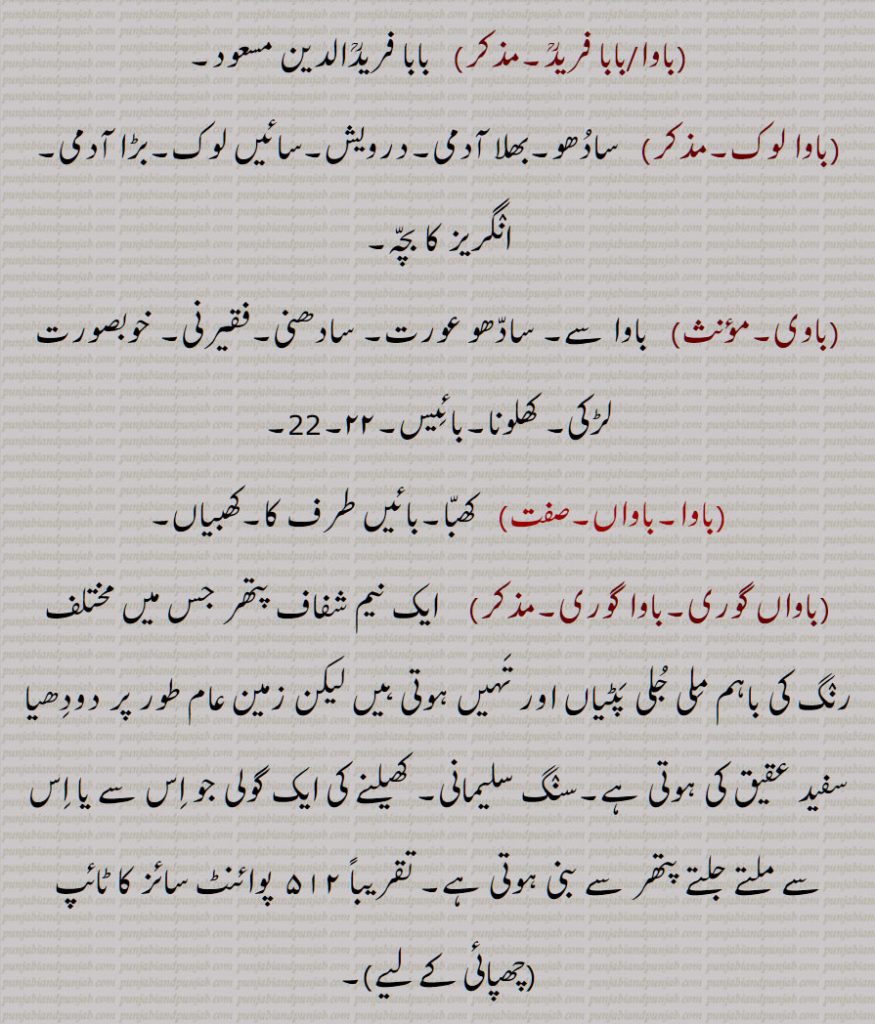 (باوا/بابا فریدؒ۔مذکر) بابا فریدؒالدین مسعود۔
(باوا لوک۔مذکر) سادُھو۔بھلا آدمی۔درویش۔سائیں لوک۔بڑا آدمی۔
انگریز کا بچّہ۔
(باوی۔مؤنث) باوا سے۔ سادّھو عورت۔ سادھنی۔فقیرنی۔ خوبصورت
لڑکی۔ کھلونا۔بائِیس۔۲۲۔22۔
(باوا۔باواں۔صفت) کھبّا۔بائیں طرف کا۔کھبیاں۔
(باواں گوری۔باوا گوری۔مذکر) ایک نیم شفاف پتھر جس میں مختلف
رنگ کی باہم مِلی جُلی پَٹیاں اور تَہیں ہوتی ہیں لیکن زمین عام طور پر دودِھیا
سفید عقیق کی ہوتی ہے۔سنگ سلیمانی۔ کھیلنے کی ایک گولی جو اِس سے یا اِس
سے ملتے جلتے پتھر سے بنی ہوتی ہے۔ تقریباً ۵۱۲ پوائنٹ سائز کا ٹائپ
(چھپائی کے لیے)۔